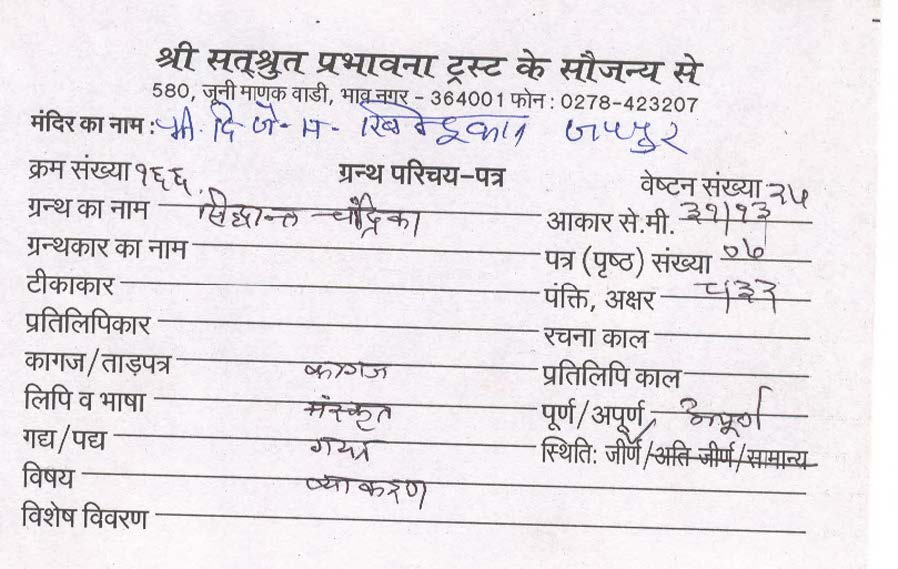 श्री सत्श्रुत प्रभावना ट्रस्ट के सौजन्य से
580, जूनी माणक वाडी, भाव नगर - 364001 फोन : 0278-423207
मंदिर का नाम : श्री. दि. जै. म. जयपुर
क्रम संख्या १६६. ग्रन्थ परिचय-पत्र वेष्टन संख्या २५
ग्रन्थ का नाम सिद्धान्त चंद्रिका आकार से.मी. ३१/१३
ग्रन्थकार का नाम पत्र (पृष्ठ) संख्या ०७
टीकाकार पंक्ति, अक्षर
प्रतिलिपिकार रचना काल
कागज/ताड़पत्र कागज प्रतिलिपि काल
लिपि व भाषा संस्कृत पूर्ण/अपूर्ण अपूर्ण
गद्य/पद्य गद्य स्थिति: जीर्ण/अति जीर्ण/सामान्य
विषय व्याकरण
विशेष विवरण